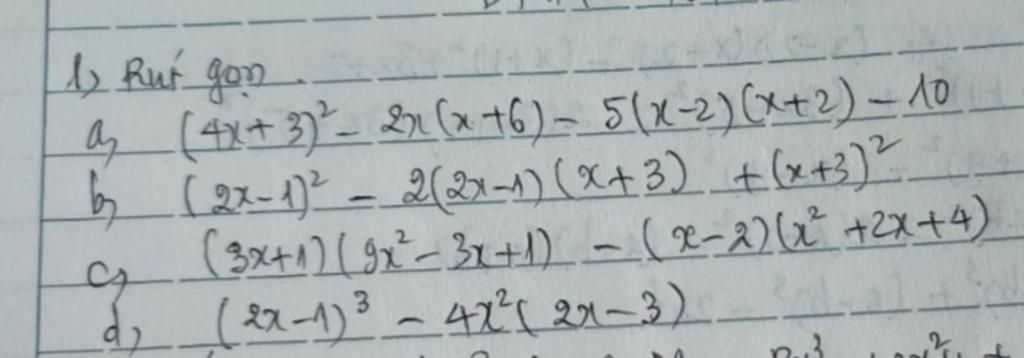 1, Rút gọn.
a, (4x+3)² - 2x(x+6) - 5(x-2)(x+2) - 10
b, (2x-1)² - 2(2x-1)(x+3) + (x+3)²
c, (3x+1)(9x² - 3x+1) - (x-2)(x² +2x+4)
d, (2x-1)³ - 4x²(2x-3)